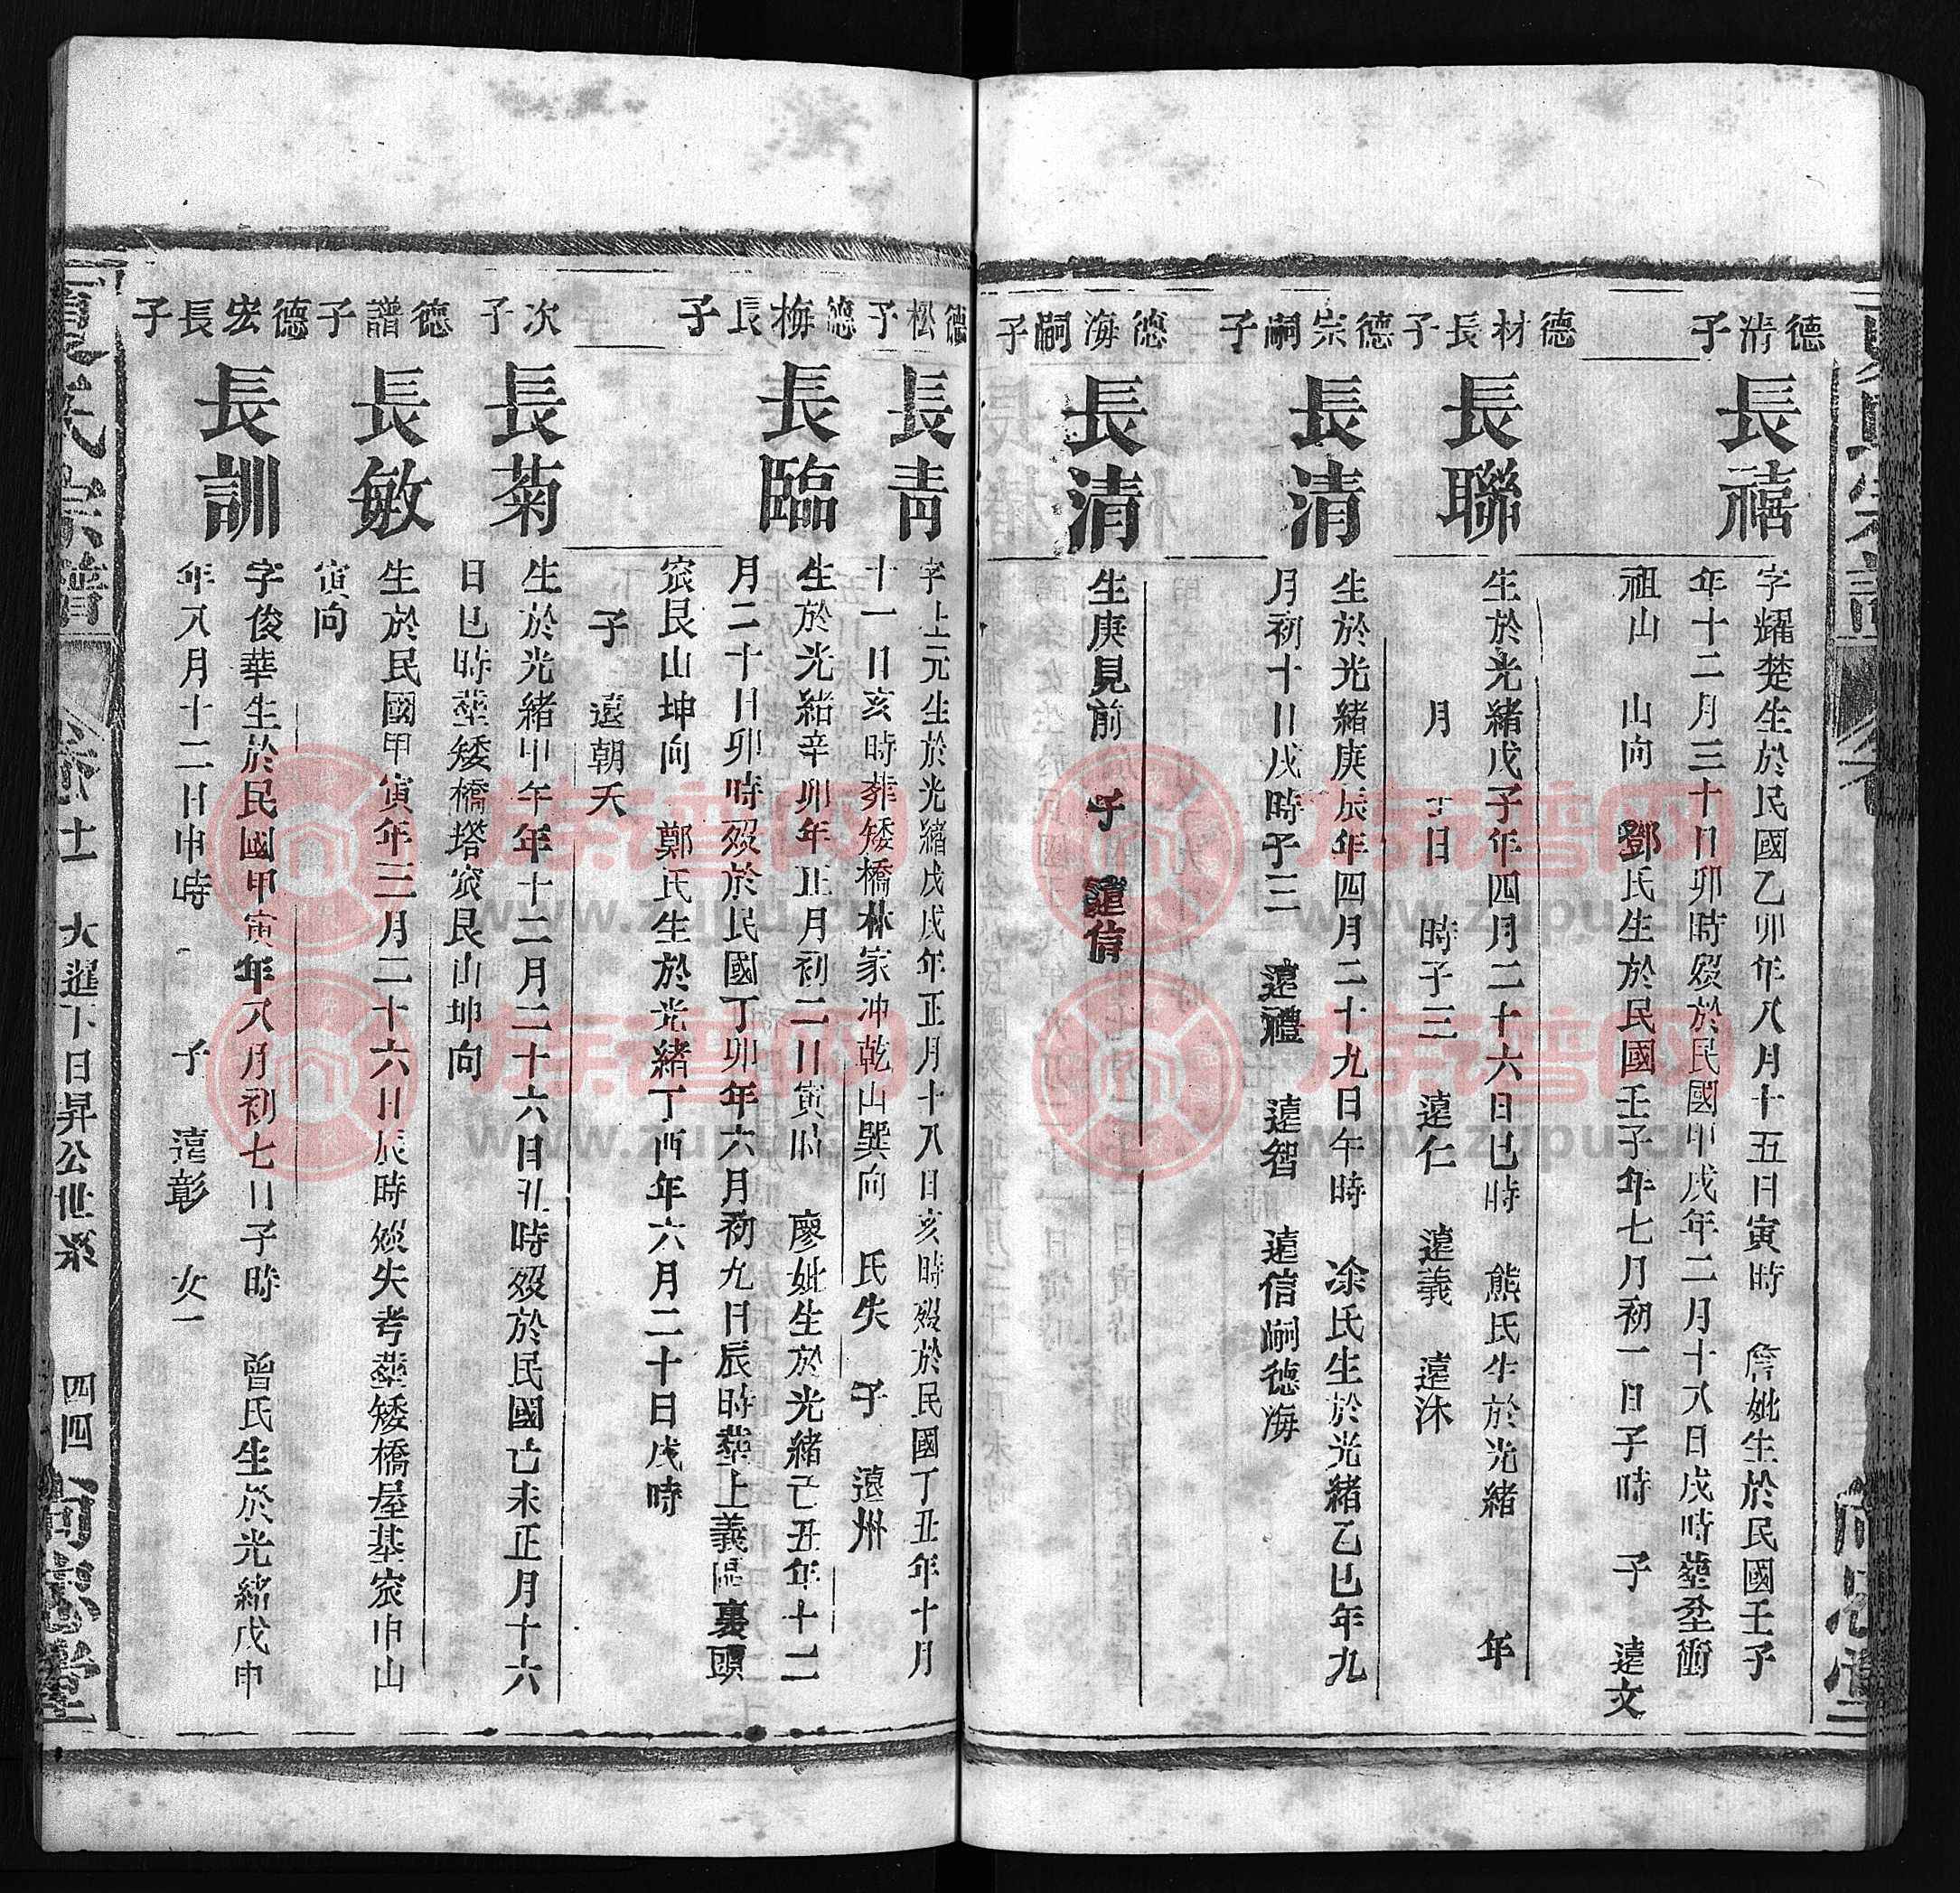 德清子
長禧
字耀楚生於民國乙卯年八月十五日寅時 詹妣生於民國壬子
年十二月三十日卯時歿於民國甲戌年二月十八日戌時塟坌衝
祖山 山向 鄧氏生於民國壬子年七月初一日子時 子 遠文
德材長子
長聯
生於光緒戊子年四月二十六日巳時 熊氏生於光緒 年
月 日 時子三 遠仁 遠義 遠沐
德宗嗣子
長清
生於光緒庚辰年四月二十九日午時 涂氏生於光緒乙巳年九
月初十日戌時子三 遠禮 遠智 遠信嗣德海
德海嗣子
長清
生庚見前 子 遠信
德松子
長青
字上元生於光緒戊戌年正月十八日亥時歿於民國丁丑年十月
十一日亥時葬矮橋林家冲乾山巽向 氏失 子 遠州
德梅長子
長臨
生於光緒辛卯年正月初二日寅時 廖妣生於光緒己丑年十二
月二十日卯時歿於民國丁卯年六月初九日辰時塟上義區裏頭
㝎艮山坤向 鄭氏生於光緒丁酉年六月二十日戌時
子 遠朝夭
次子
長菊
生於光緒甲午年十二月二十六日丑時歿於民國己未正月十六
日巳時塟矮橋塔㝎艮山坤向
德譜子
長敏
生於民國甲寅年三月二十六日辰時歿失考塟矮橋屋基㝎申山
寅向
德宏長子
長訓
字俊華生於民國甲寅年八月初七日子時 曾氏生於光緒戊申
年八月十二日申時 子 遠彰 女一
夏氏宗譜
卷十一 大暹下日昇公世系 四四 尚忠堂
族谱网
www.zupu.cn
族谱网
www.zupu.cn
族谱网
www.zupu.cn
族谱网
www.zupu.cn